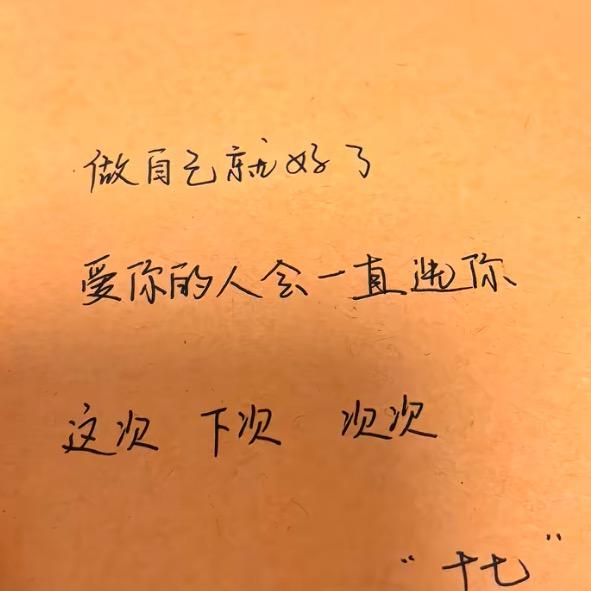 做自己就好了
爱你的人会一直选你
这次 下次 次次
“十七”